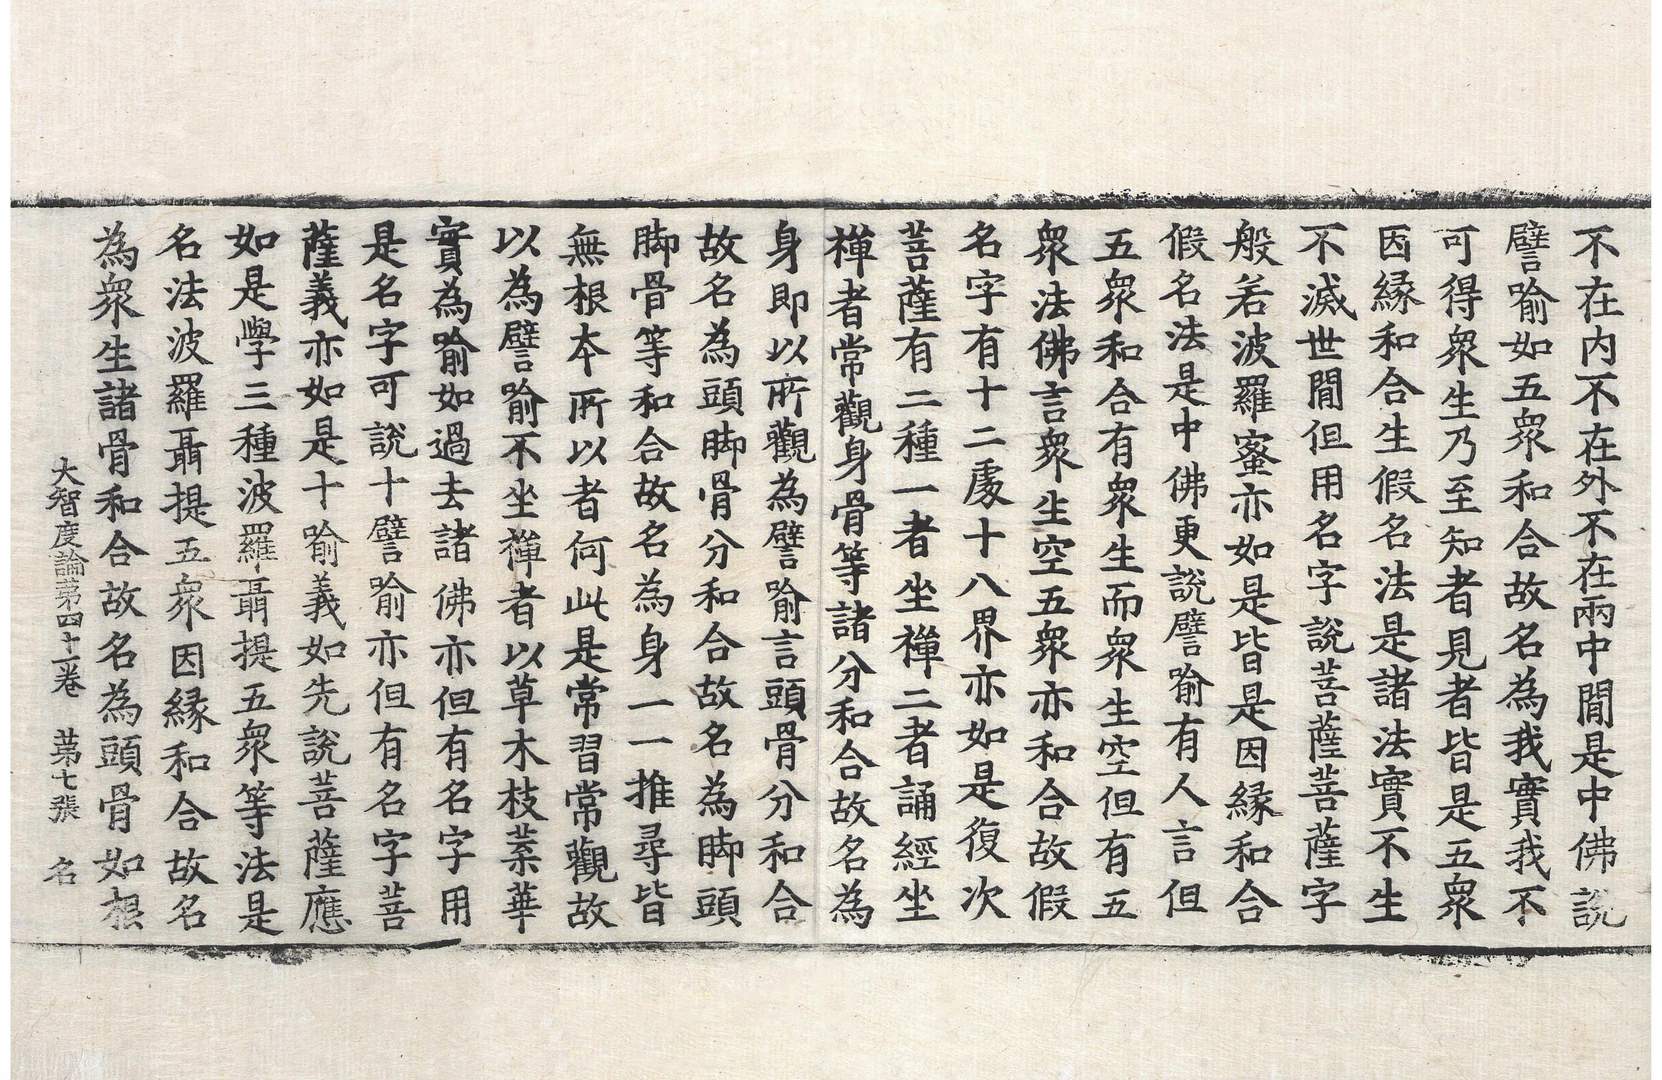 不在內不在外不在兩中閒是中佛說
譬喻如五衆和合故名為我實我不
可得衆生乃至知者見者皆是五衆
因緣和合生假名法是諸法實不生
不滅世閒但用名字說菩薩菩薩字
般若波羅蜜亦如是皆是因緣和合
假名法是中佛更說譬喻有人言但
五衆和合有衆生而衆生空但有五
衆法佛言衆生空五衆亦和合故假
名字有十二處十八界亦如是復次
菩薩有二種一者坐禪二者誦經坐
禪者常觀身骨等諸分和合故名為
身即以所觀為譬喻言頭骨分和合
故名為頭脚骨分和合故名為脚頭
脚骨等和合故名為身一一推尋皆
無根本所以者何此是常習常觀故
以為譬喻不坐禪者以草木枝葉華
實為喻如過去諸佛亦但有名字用
是名字可說十譬喻亦但有名字菩
薩義亦如是十喻義如先說菩薩應
如是學三種波羅聶提五衆等法是
名法波羅聶提五衆因緣和合故名
為衆生諸骨和合故名為頭骨如根
大智度論第四十一卷 第七張 名